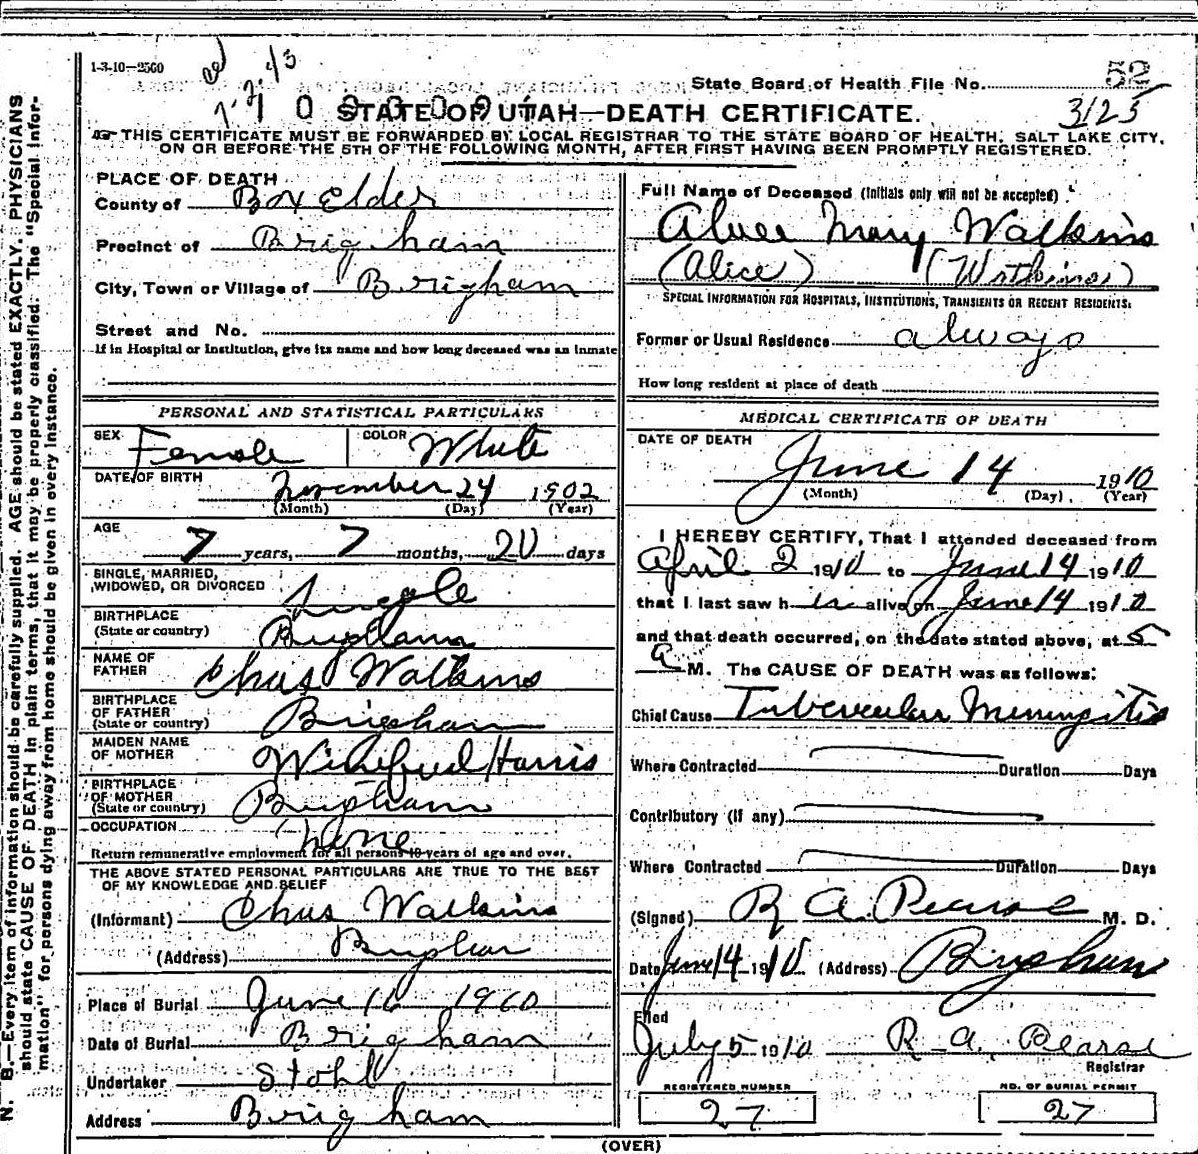 1-3-10—2560
State Board of Health File No. 52
3125
STATE OF UTAH—DEATH CERTIFICATE.
THIS CERTIFICATE MUST BE FORWARDED BY LOCAL REGISTRAR TO THE STATE BOARD OF HEALTH, SALT LAKE CITY,
ON OR BEFORE THE 5TH OF THE FOLLOWING MONTH, AFTER FIRST HAVING BEEN PROMPTLY REGISTERED.
N. B.—Every item of information should be carefully supplied. AGE should be stated EXACTLY. PHYSICIANS
should state CAUSE OF DEATH in plain terms, that it may be properly classified. The "Special Infor-
mation" for persons dying away from home should be given in every instance.
PLACE OF DEATH
County of Box Elder
Precinct of Brigham
City, Town or Village of Brigham
Street and No.
If in Hospital or Institution, give its name and how long deceased was an inmate
PERSONAL AND STATISTICAL PARTICULARS
SEX Female COLOR White
DATE OF BIRTH November 24 1902
(Month) (Day) (Year)
AGE
7 years, 7 months, 20 days
SINGLE, MARRIED,
WIDOWED, OR DIVORCED Single
BIRTHPLACE
(State or country) Brigham
NAME OF
FATHER Chas Watkins
BIRTHPLACE
OF FATHER
(State or country) Brigham
MAIDEN NAME
OF MOTHER Winefred Harris
BIRTHPLACE
OF MOTHER
(State or country) Brigham
OCCUPATION None
Return remunerative employment for all persons 10 years of age and over.
THE ABOVE STATED PERSONAL PARTICULARS ARE TRUE TO THE BEST
OF MY KNOWLEDGE AND BELIEF
(Informant) Chas Watkins
(Address) Brigham
Place of Burial June 16 1910
Date of Burial Brigham
Undertaker Stohl
Address Brigham
Full Name of Deceased (Initials only will not be accepted)
Alice Mary Watkins
(Alice) (Watkins)
SPECIAL INFORMATION FOR HOSPITALS, INSTITUTIONS, TRANSIENTS OR RECENT RESIDENTS.
Former or Usual Residence always
How long resident at place of death
MEDICAL CERTIFICATE OF DEATH
DATE OF DEATH
June 14 1910
(Month) (Day) (Year)
I HEREBY CERTIFY, That I attended deceased from
April 2 1910 to June 14 1910
that I last saw her alive on June 14 1910
and that death occurred, on the date stated above, at 5
A M. The CAUSE OF DEATH was as follows:
Chief Cause Tubercular Meningitis
Where Contracted Duration Days
Contributory (if any)
Where Contracted Duration Days
(Signed) R A Pearse M. D.
Date June 14 1910 (Address) Brigham
Filed
July 5 1910 R. A. Pearse
Registrar
REGISTERED NUMBER NO. OF BURIAL PERMIT
27 27
(OVER)